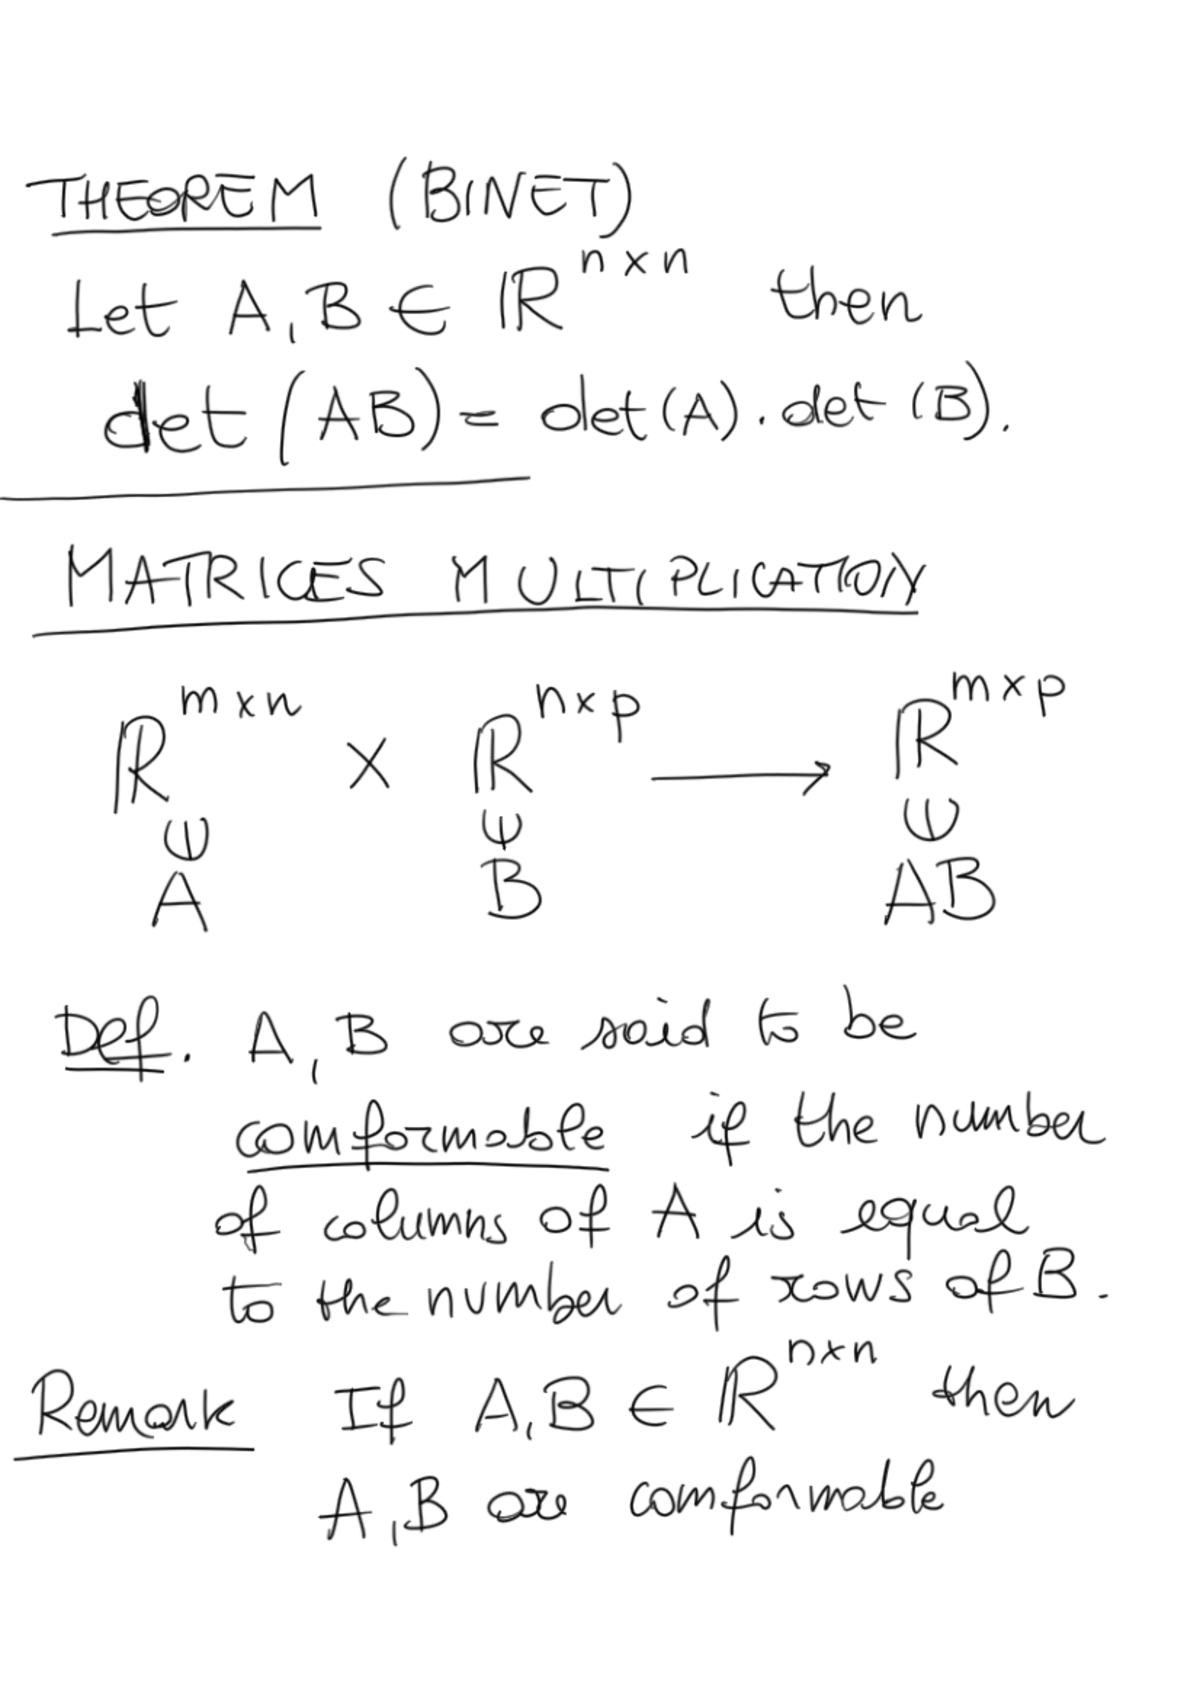 THEOREM (BINET)
Let A, B ∈ ℝ^{n×n} then
det (AB) = det(A) . det (B).
MATRICES MULTIPLICATION
ℝ^{m×n} × ℝ^{n×p} ⟶ ℝ^{m×p}
A B AB
Def. A, B are said to be
comformable if the number
of columns of A is equal
to the number of rows of B.
Remark If A, B ∈ ℝ^{n×n} then
A, B are comformable